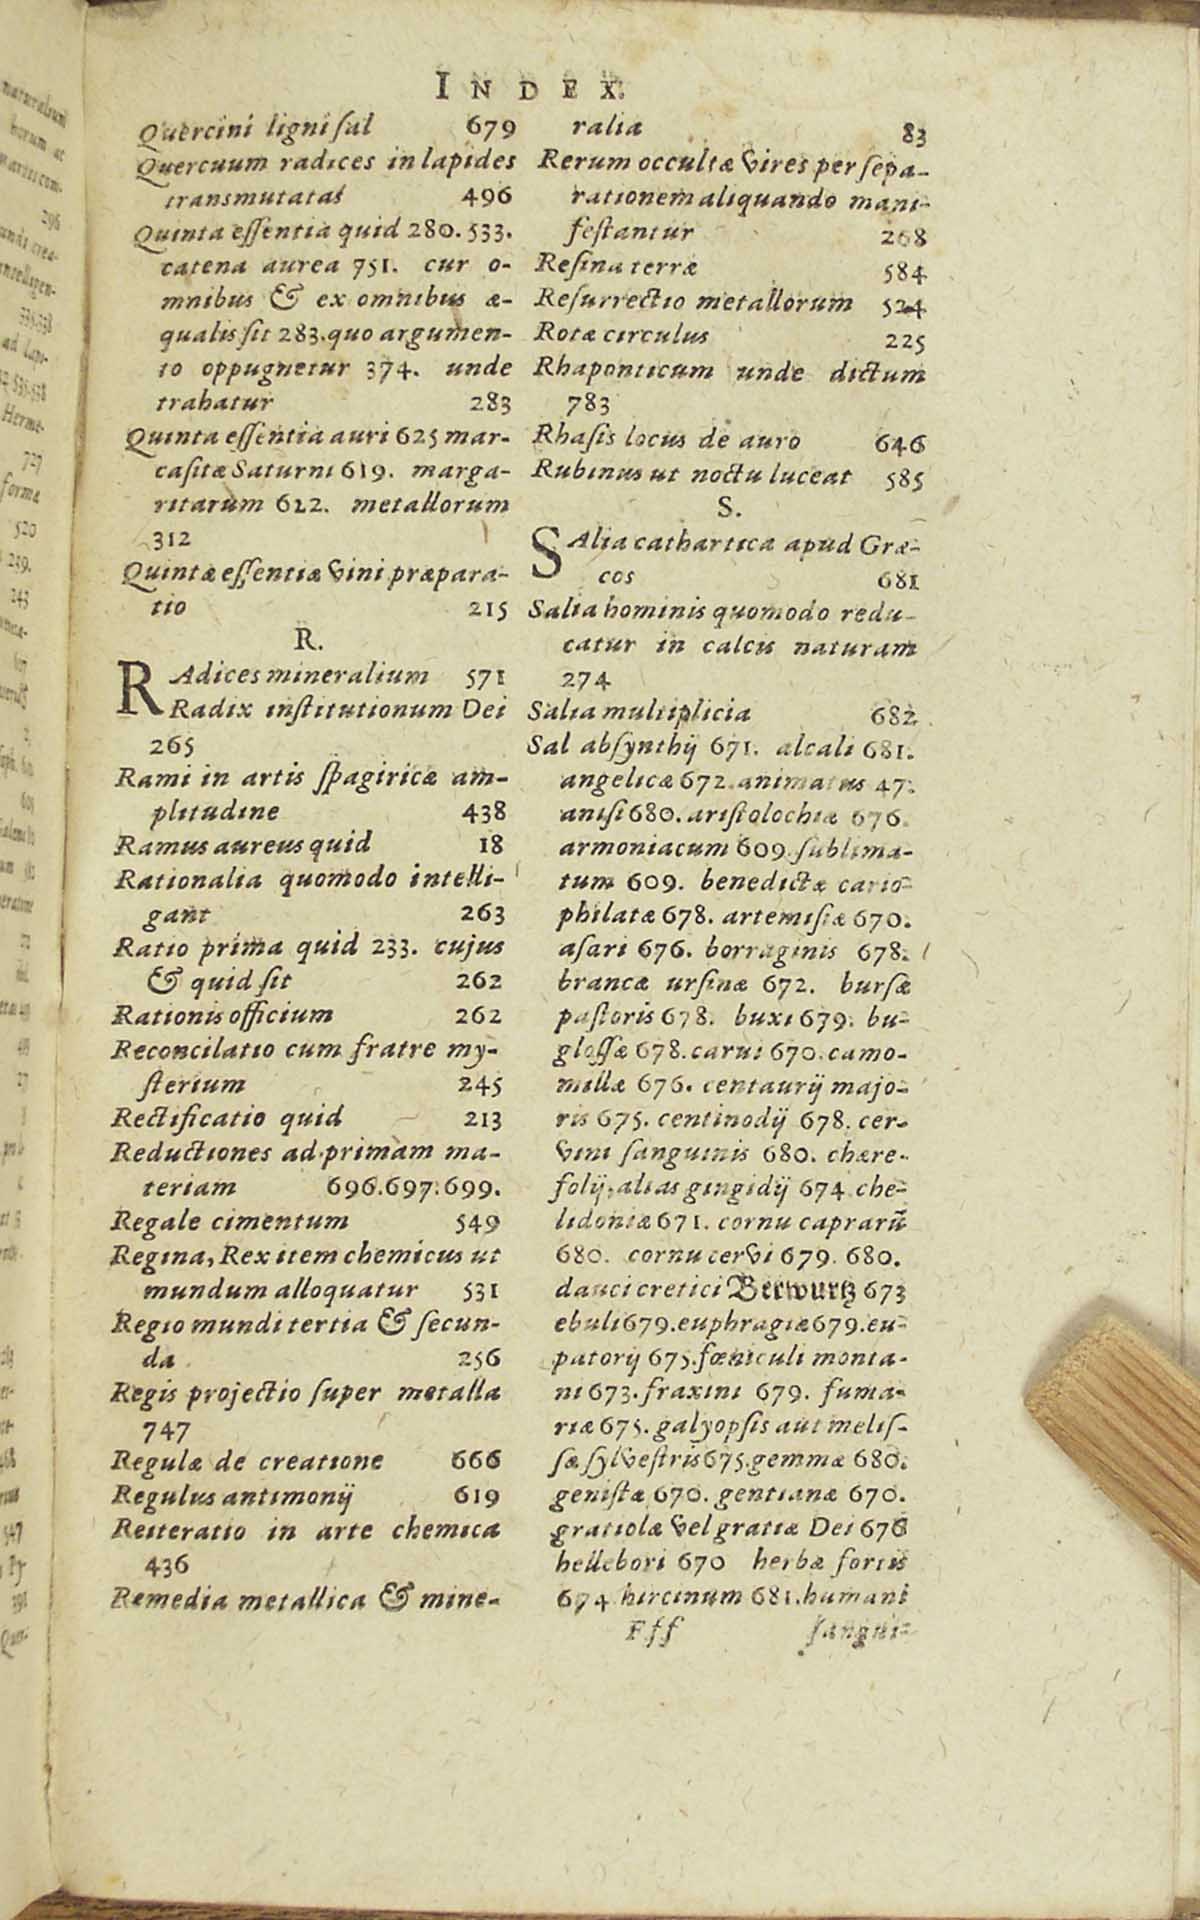 INDEX.
Quercini ligni sal 679
Quercuum radices in lapides
transmutatas 496
Quinta essentia quid 280. 533.
catena aurea 751. cur o-
mnibus & ex omnibus æ-
qualis sit 283. quo argumen-
to oppugnetur 374. unde
trahatur 283
Quinta essentia auri 625 mar-
casitæ Saturni 619. marga-
ritarum 622. metallorum
312
Quintæ essentiæ vini præpara-
tio 215
R.
RAdices mineralium 571
Radix institutionum Dei
265
Rami in artis spagiricæ am-
plitudine 438
Ramus aureus quid 18
Rationalia quomodo intelli-
gant 263
Ratio prima quid 233. cujus
& quid sit 262
Rationis officium 262
Reconcilatio cum fratre my-
sterium 245
Rectificatio quid 213
Reductiones ad primam ma-
teriam 696. 697. 699.
Regale cimentum 549
Regina, Rex item chemicus ut
mundum alloquatur 531
Regio mundi tertia & secun-
da 256
Regis projectio super metalla
747
Regulæ de creatione 666
Regulus antimonij 619
Reiteratio in arte chemica
436
Remedia metallica & mine-
ralia 83
Rerum occultæ vires per sepa-
rationem aliquando mani-
festantur 268
Resina terræ 584
Resurrectio metallorum 524
Rotæ circulus 225
Rhaponticum unde dictum
783
Rhasis locus de auro 646
Rubinus ut noctu luceat 585
S.
SAlia cathartica apud Græ-
cos 681
Salia hominis quomodo redu-
catur in calcis naturam
274
Salia multiplicia 682
Sal absynthij 671. alcali 681.
angelicæ 672. animatus 47.
anisi 680. aristolochiæ 676.
armoniacum 609. sublima-
tum 609. benedictæ cario-
philatæ 678. artemisiæ 670.
asari 676. borraginis 678.
brancæ ursinæ 672. bursæ
pastoris 678. buxi 679. bu-
glossæ 678. carui 670. camo-
millæ 676. centaurij majo-
ris 675. centinodij 678. cer-
vini sanguinis 680. chære-
folij, alias gingidij 674. che-
lidoniæ 671. cornu caprarũ
680. cornu cervi 679. 680.
dauci cretici Berwurtz 673
ebuli 679. euphragiæ 679. eu-
patorij 675. fœniculi monta-
ni 673. fraxini 679. fuma-
riæ 675. galyopsis aut melis-
sæ sylvestris 675. gemmæ 680.
genistæ 670. gentianæ 670.
gratiolæ vel gratiæ Dei 676
hellebori 670 herbæ fortis
674. hircinum 681. humani
Fff sangui-